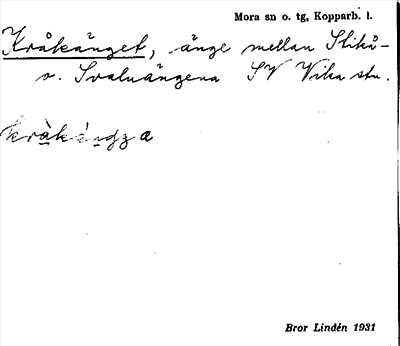 Mora sn o. tg, Kopparb. l.
Kråkänget, änge mellan Slikå-
o. Svaluängena SV Vika stn.
kràkéngza
Bror Lindén 1931